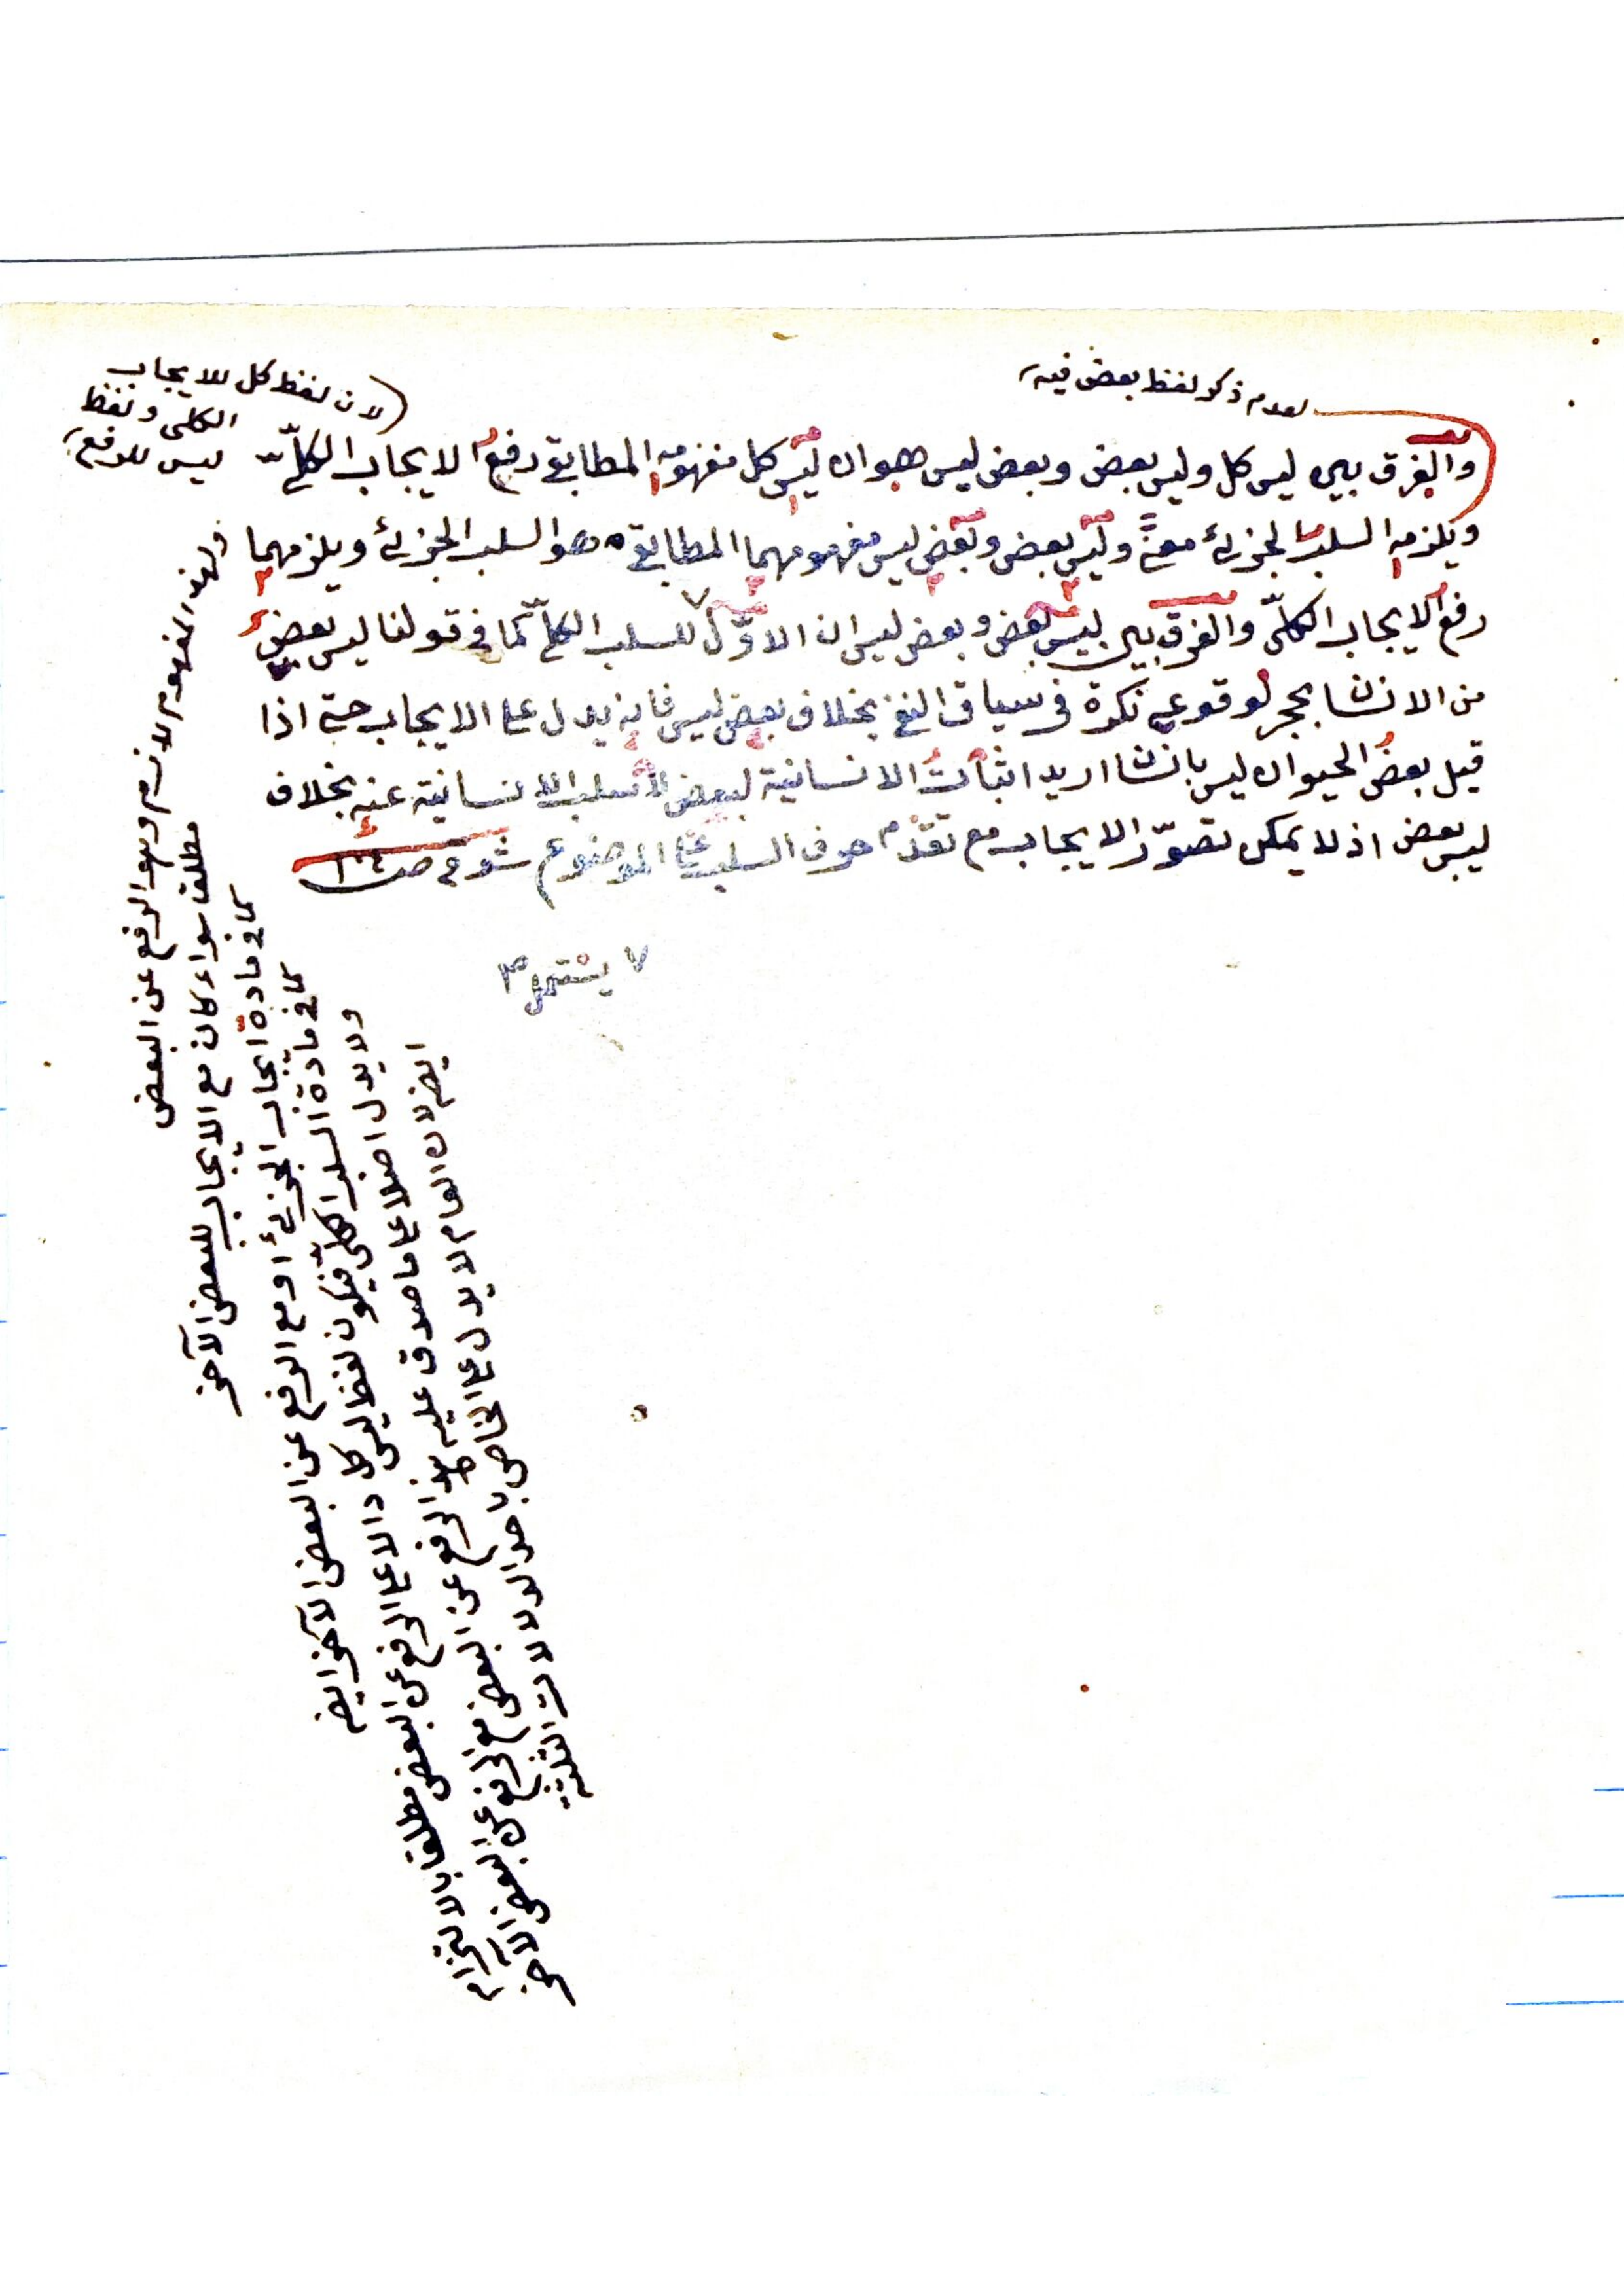 لعدم ذكر لفظ بعض فيه
لان لفظ كل للايجاب
الكلى ولفظ
ليس للرفع
والفرق بين ليس كل وليس بعض وبعض ليس هو ان ليس كل مفهومه المطابقى رفع الايجاب الكلّى
ويلزمه السلب الجزئى معه وليس بعض وبعض ليس مفهومهما المطابقى هو السلب الجزئى ويلزمهما
رفع الايجاب الكلّى والفرق بين ليس بعض وبعض ليس ان الاوّل للسلب الكلّى كما فى قولنا ليس بعض
من الانسا بحجر لوقوعه نكرة فى سياق النفى بخلاف بعض ليس فانه يدل على الايجاب حتى اذا
قيل بعض الحيوان ليس بانسا اريد اثبات الانسانية لبعض لا سلب الانسانية عنه بخلاف
ليس بعض اذ لا يمكن تصوّر الايجاب مع تقدّم حرف السلب على الموضوع
٧ يستعمل ٣
المفهوم لازم وهو الرفع عن البعض
مطلقا سواء كان مع الايجاب للبعض الآخر
كما فى مادة ايجاب الجزئى او مع الرفع عن البعض الآخر ايض
كما فى مادة السلب الكلّى فيكون لفظ ليس كل دالا على الرفع عن البعض مطلقا بالالتزام
ولا يدل اصلا على ما صدق عليه الرفع عن البعض مع الرفع عن البعض الآخر
ايض لان العام لا يدل على الخاص باحد الدلالات الثلث